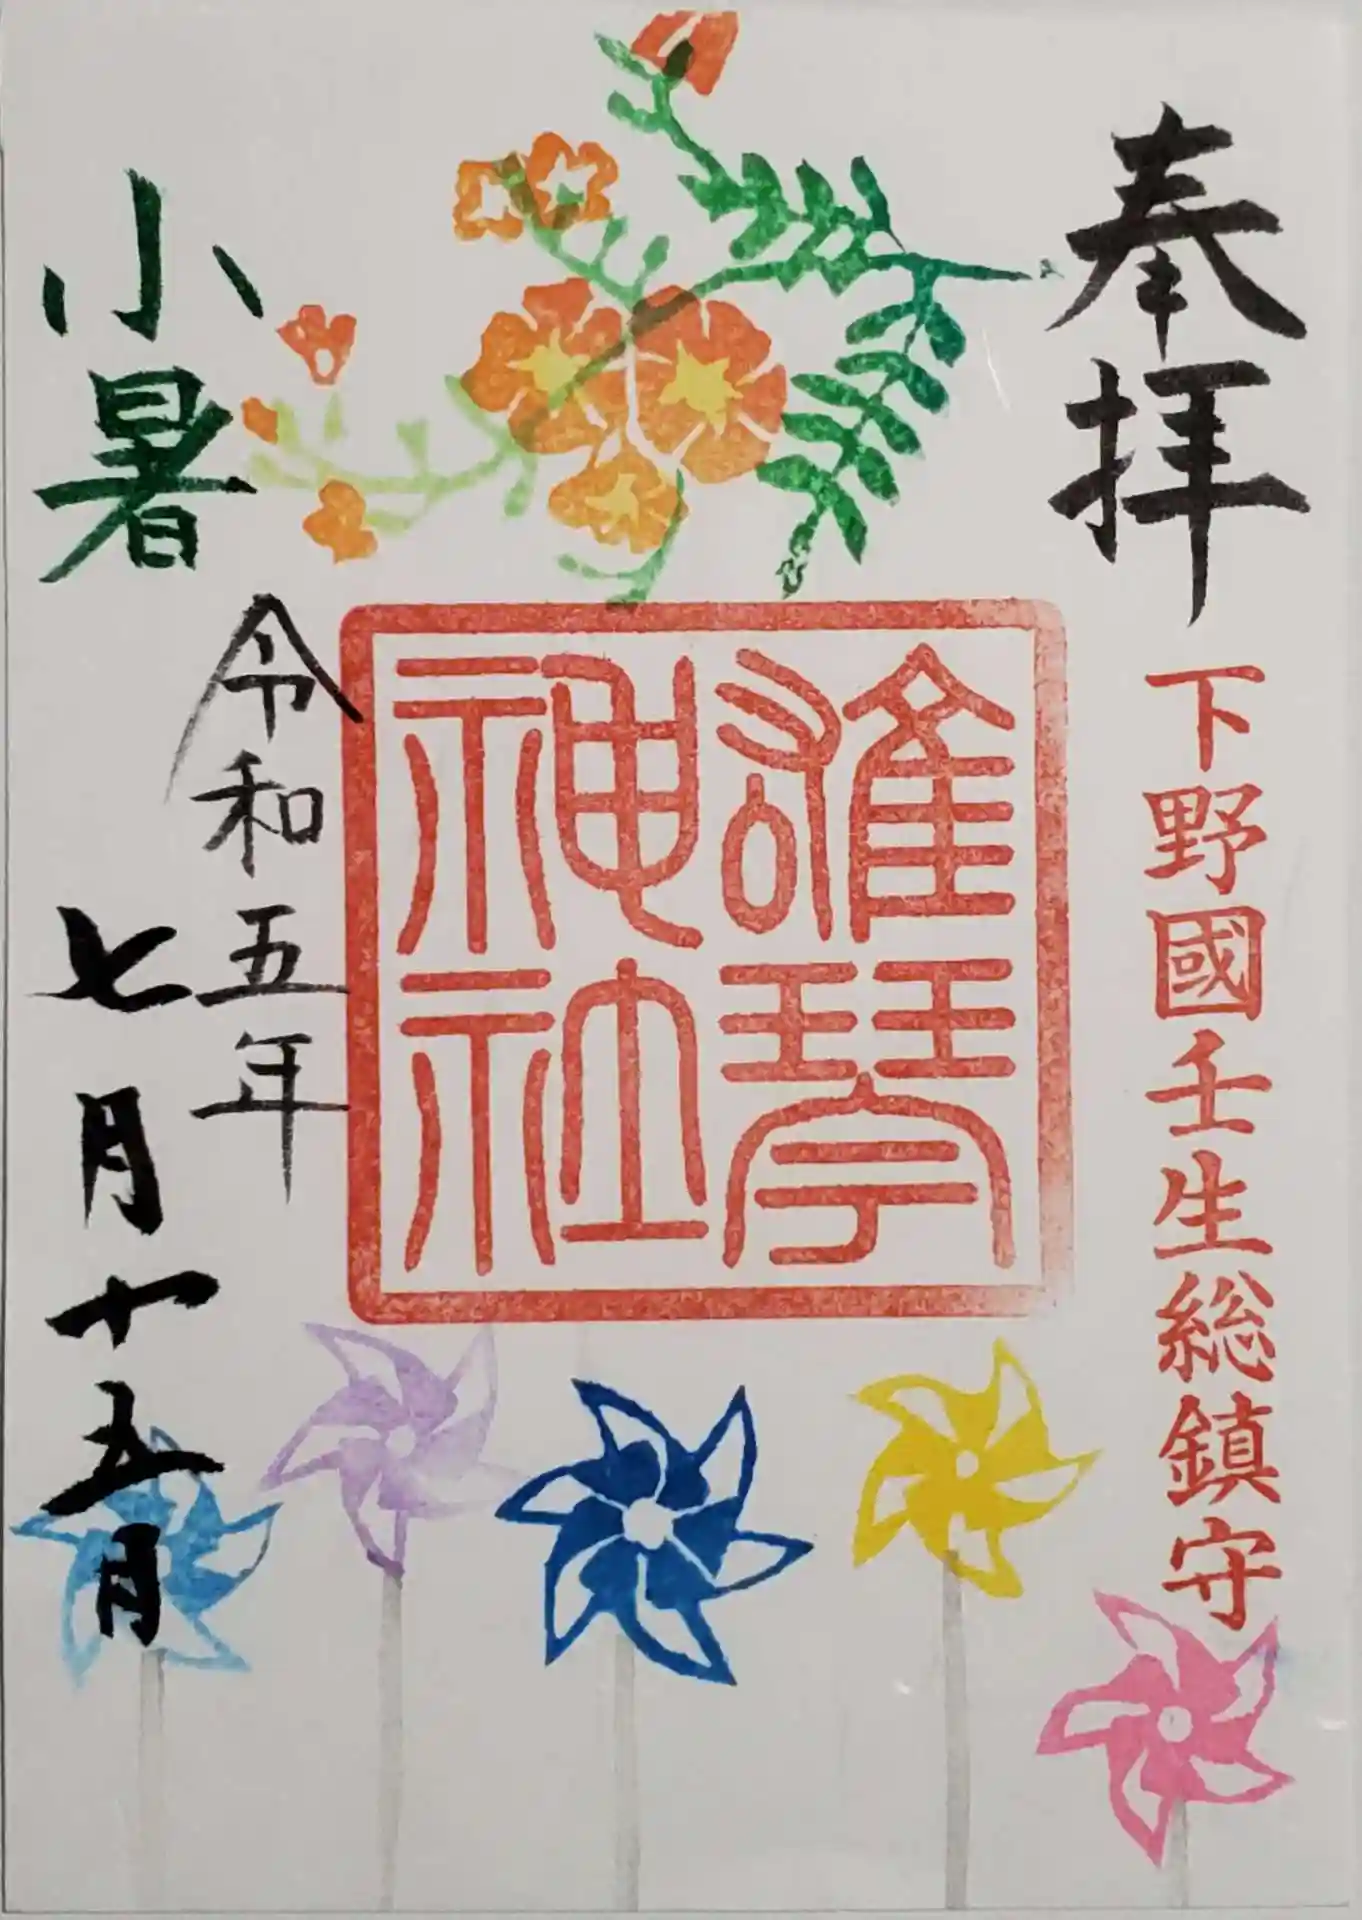 奉拝
下野國壬生総鎮守
雄琴
神社
小暑
令和五年
七月十五日